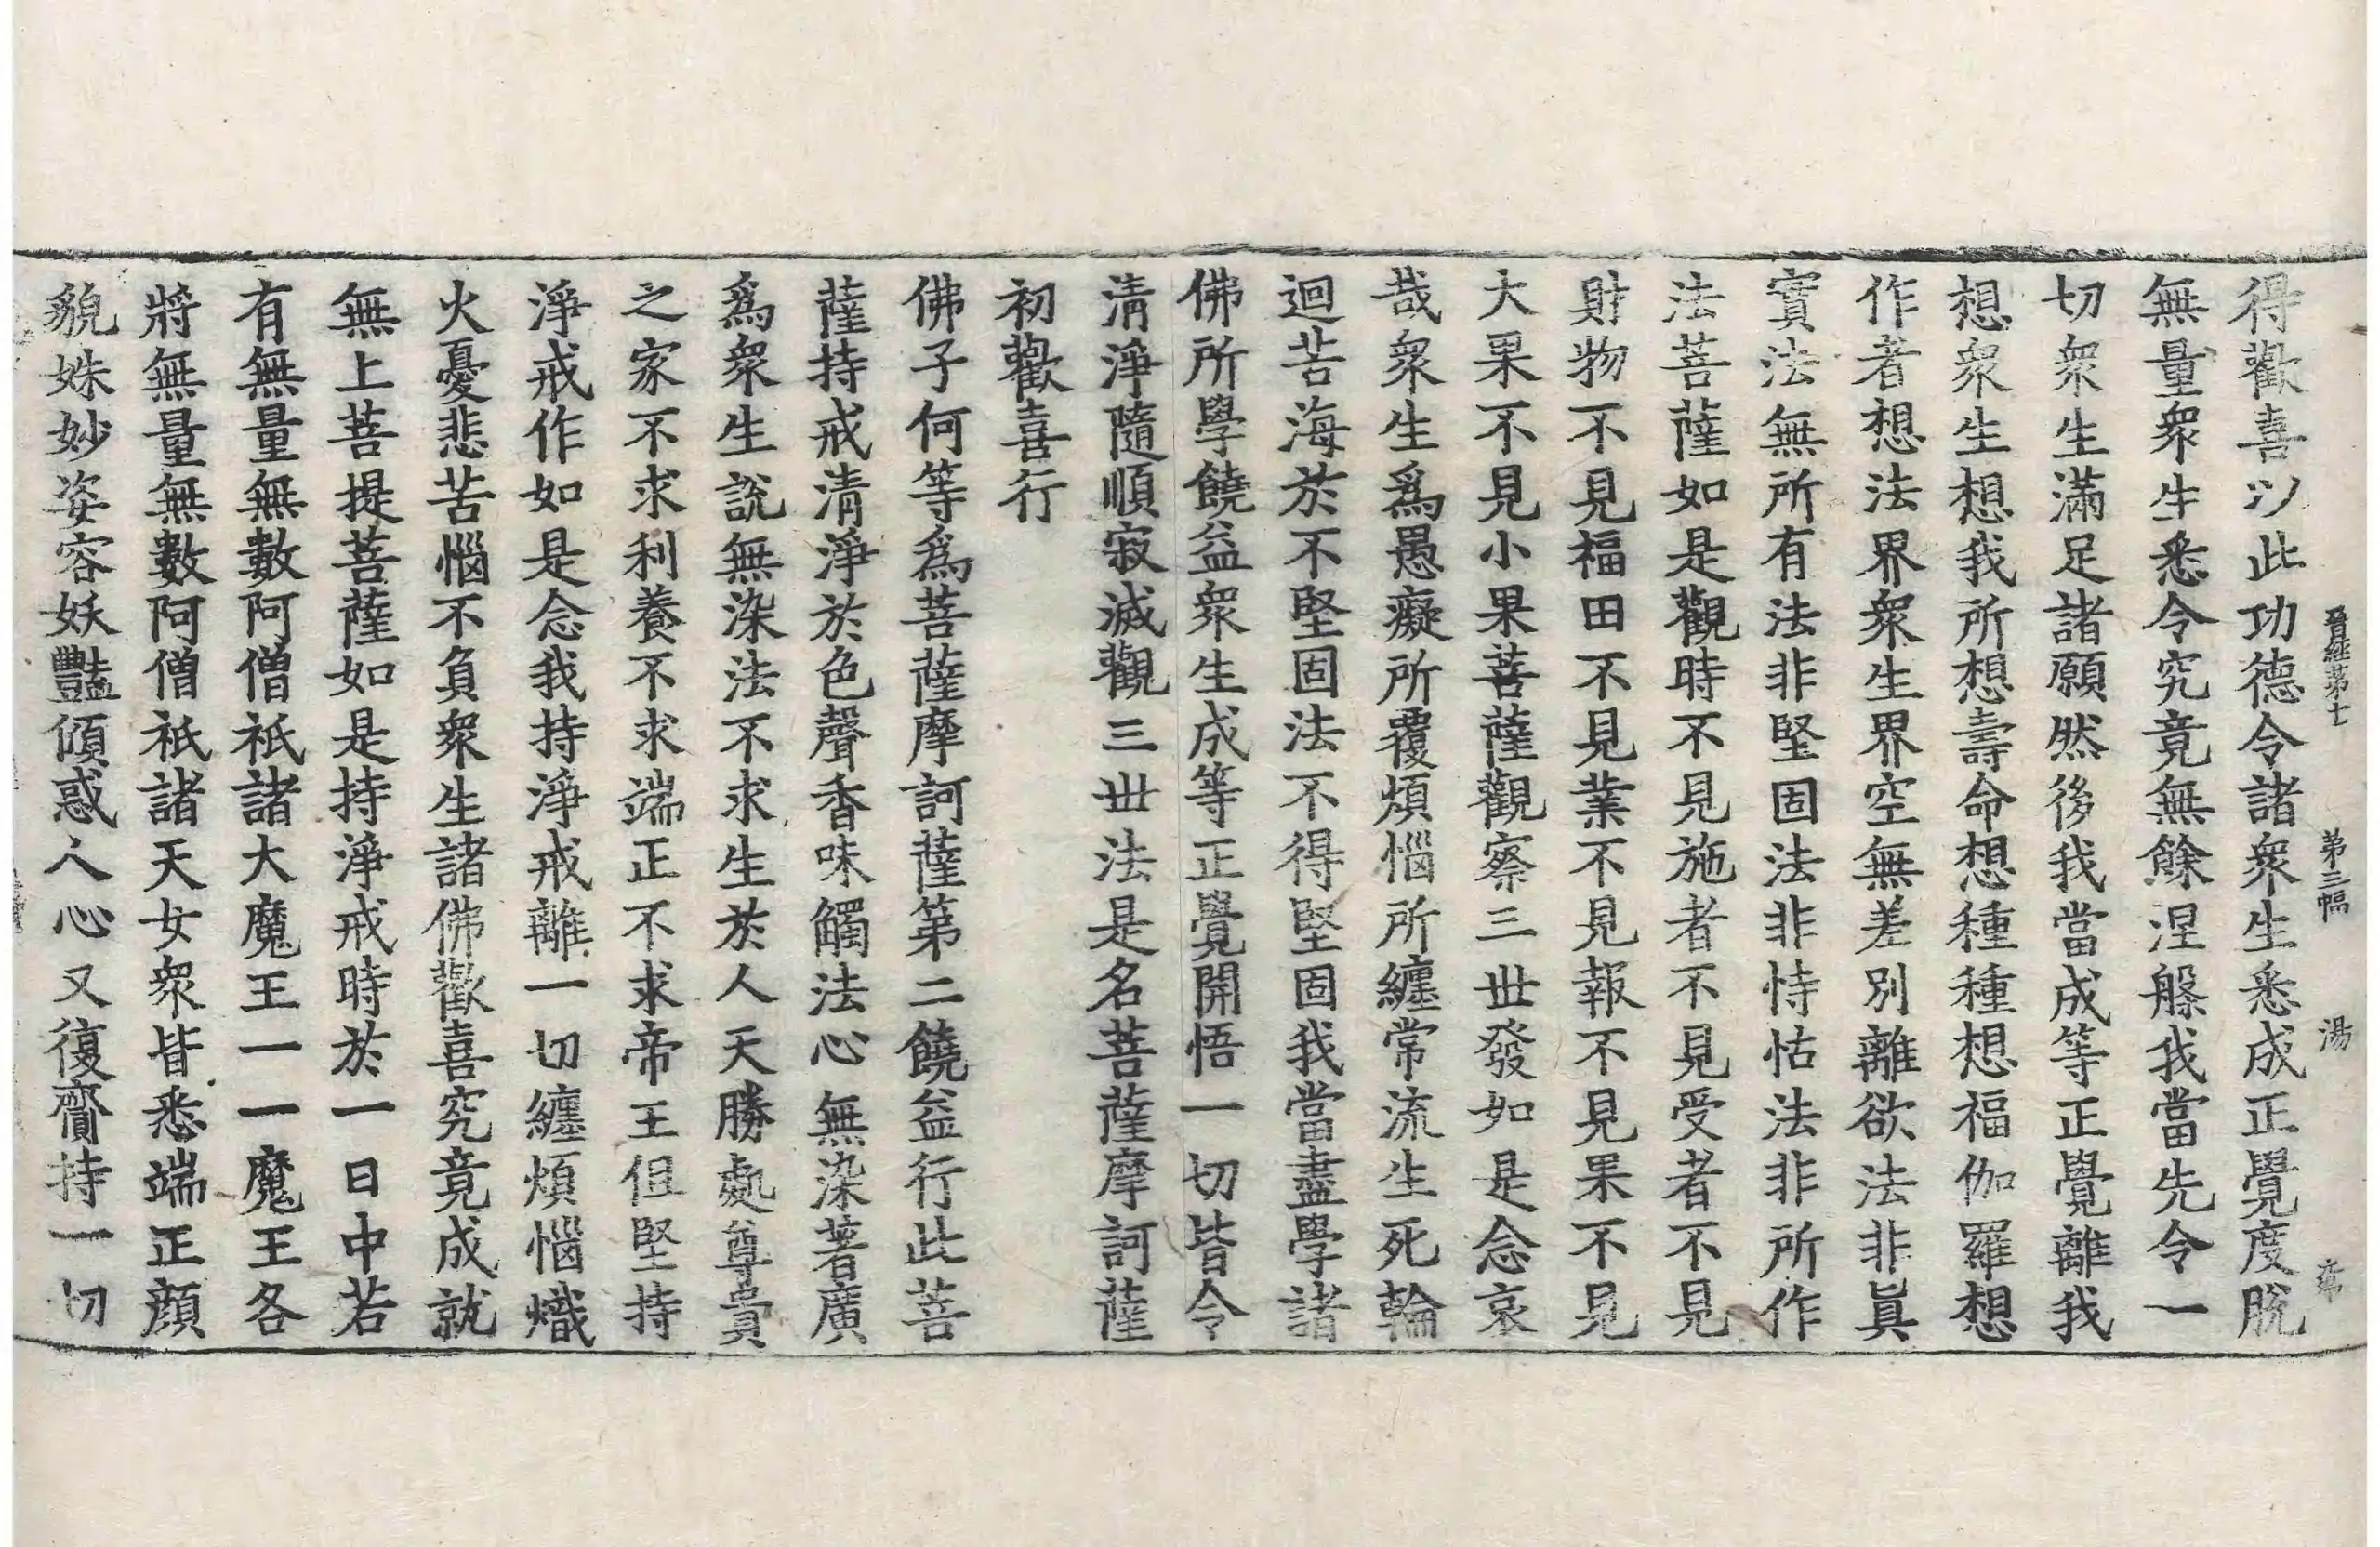 晉經第十 第三幅 湯
得歡喜以此功德令諸衆生悉成正覺度脫
無量衆生悉令究竟無餘涅槃我當先令一
切衆生滿足諸願然後我當成等正覺離我
想衆生想我所想壽命想種種想福伽羅想
作者想法界衆生界空無差別離欲法非眞
實法無所有法非堅固法非恃怙法非所作
法菩薩如是觀時不見施者不見受者不見
財物不見福田不見業不見報不見果不見
大果不見小果菩薩觀察三世發如是念哀
哉衆生爲愚癡所覆煩惱所纏常流生死輪
迴苦海於不堅固法不得堅固我當盡學諸
佛所學饒益衆生成等正覺開悟一切皆令
清淨隨順寂滅觀三世法是名菩薩摩訶薩
初歡喜行
佛子何等爲菩薩摩訶薩第二饒益行此菩
薩持戒清淨於色聲香味觸法心無染著廣
爲衆生說無染法不求生於人天勝處尊貴
之家不求利養不求端正不求帝王但堅持
淨戒作如是念我持淨戒離一切纏煩惱熾
火憂悲苦惱不負衆生諸佛歡喜究竟成就
無上菩提菩薩如是持淨戒時於一日中若
有無量無數阿僧祇諸大魔王一一魔王各
將無量無數阿僧祇諸天女衆皆悉端正顏
貌姝妙姿容妖豔傾惑人心又復齎持一切